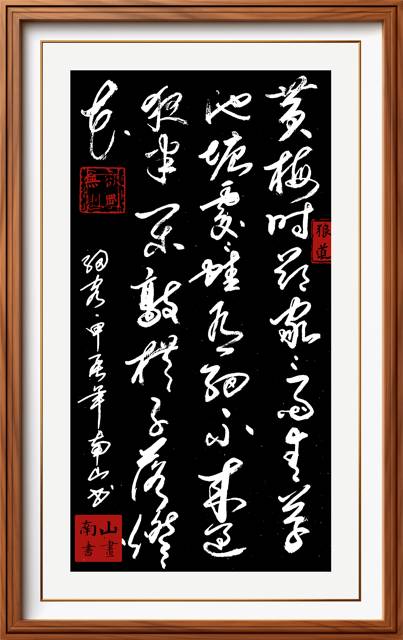 黄梅时节家々雨青草
池塘處々蛙有约不来过
夜半闲敲棋子落燈
花
约客 甲辰年南山书
狼道
南山
書畫